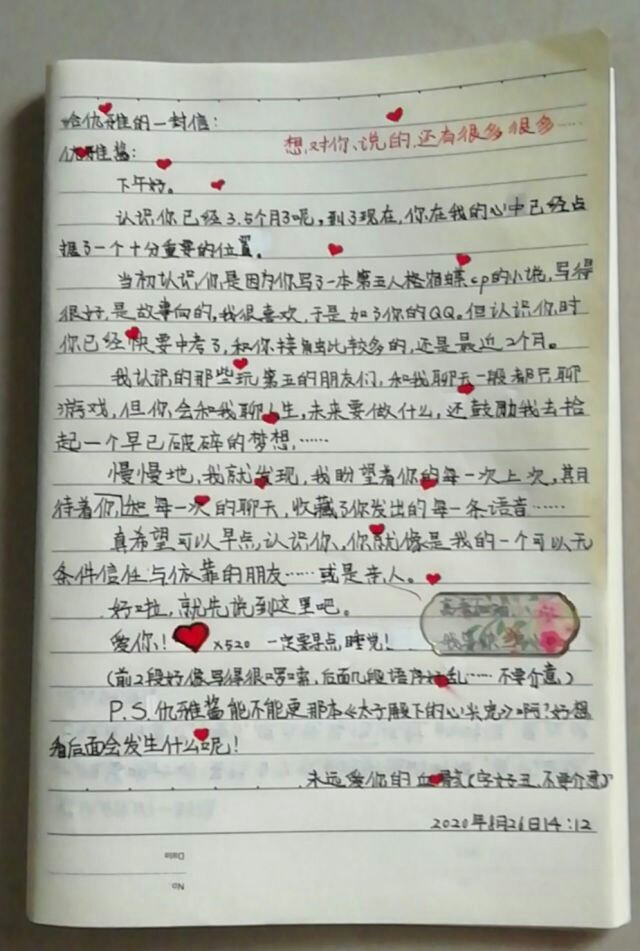 给仇雅的一封信：
想对你说的，还有很多很多……
仇雅酱：
下午好。
认识你已经3.5个月了呢，到了现在，你在我的心中已经占
据了一个十分重要的位置。
当初认识你，是因为你写了一本第五人格宿蝶cp的小说，写得
很好，是故事向的，我很喜欢，于是加了你的QQ。但认识你时
你已经快要中考了，和你接触比较多的，还是最近2个月。
我认识的那些玩第五的朋友们，和我聊天一般都只聊
游戏，但你会和我聊人生，未来要做什么，还鼓励我去拾
起一个早已破碎的梦想……
慢慢地，我就发现，我盼望着你的每一次上次，期
待着你 每一次的聊天，收藏了你发出的每一条语音……
真希望可以早点认识你，你就像是我的一个可以无
条件信任与依靠的朋友……或是亲人。
好啦，就先说到这里吧。
爱你！ x520 一定要早点睡觉！
(前2段好像写得很啰嗦，后面几段语序好乱……不要介意)
P.S.仇雅酱能不能更那本《太子殿下的心尖宠》啊？好想
看后面会发生什么呢！
永远爱你的 (字好丑，不要介意)
2020年8月26日14:12
Date
No.